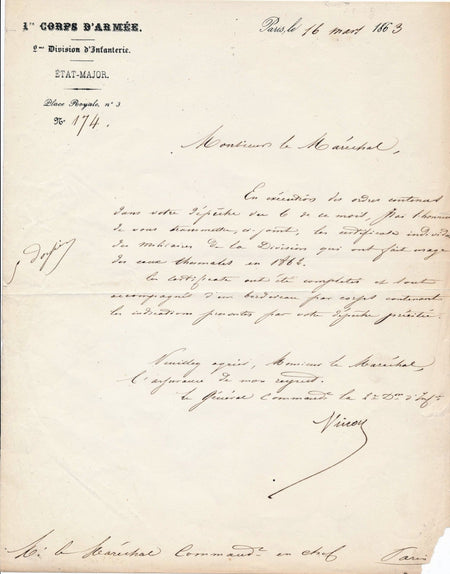 1er CORPS D'ARMÉE.
2me Division d'Infanterie.
ÉTAT-MAJOR.
Place Royale, n° 3
N° 174.
Paris, le 16 mars 1863
Monsieur le Maréchal,
En exécution des ordres contenus
dans votre dépêche du 6 de ce mois, j'ai l'honneur
de vous transmettre, ci-joint, les certificats individuels
des militaires de la Division qui ont fait usage
des eaux thermales en 1862.
Ces certificats ont été complétés et sont
accompagnés d'un bordereau par corps contenant
les indications prescrites par votre dépêche précitée.
Veuillez agréer, Monsieur le Maréchal,
l'assurance de mon respect.
Le Général Commandt la 2e Don d'Infie
Vinoy
Mr le Maréchal Commandt en chef Paris